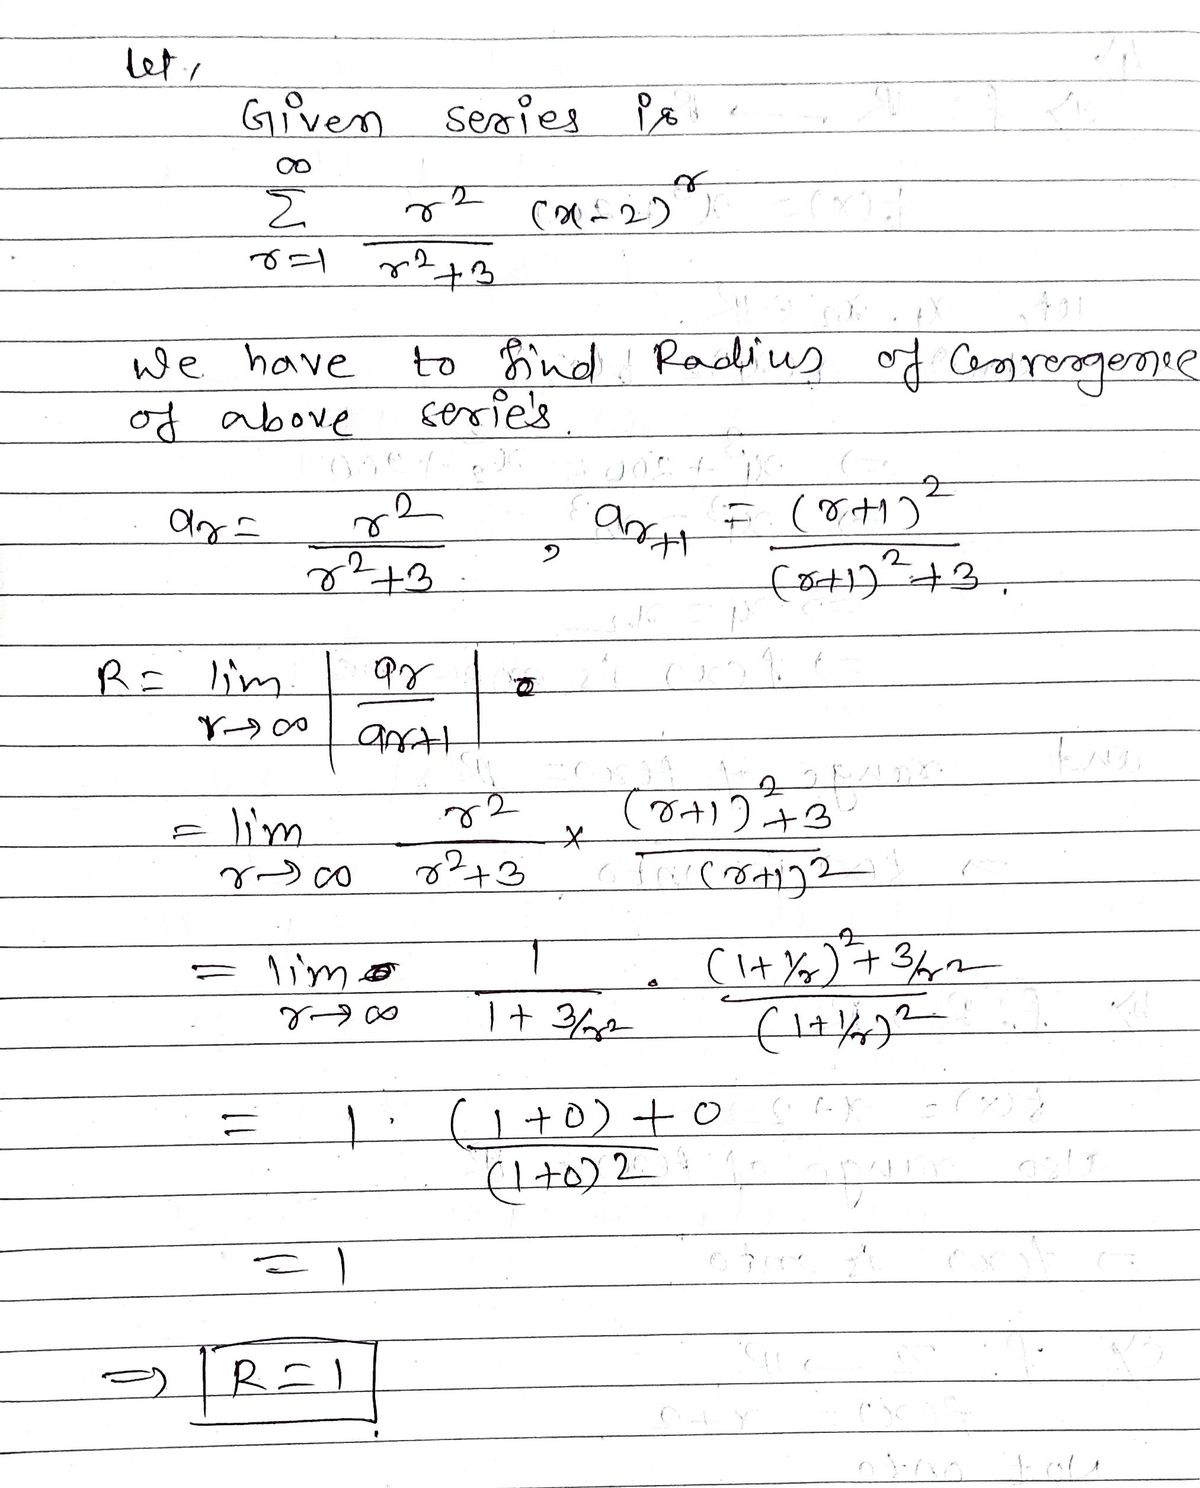 Let,
Given series is
∞
Σ r² / (r²+3) (x-2)^r
r=1
We have to find Radius of Convergence
of above serie's.
a_r = r² / (r²+3) , a_{r+1} = (r+1)² / ((r+1)²+3) .
R = lim_{r→∞} | a_r / a_{r+1} |
= lim_{r→∞} r² / (r²+3) × ((r+1)²+3) / (r+1)²
= lim_{r→∞} 1 / (1+3/r²) . ((1+1/r)²+3/r²) / (1+1/r)²
= 1 . ((1+0)+0) / (1+0)2
= 1
⇒ R = 1